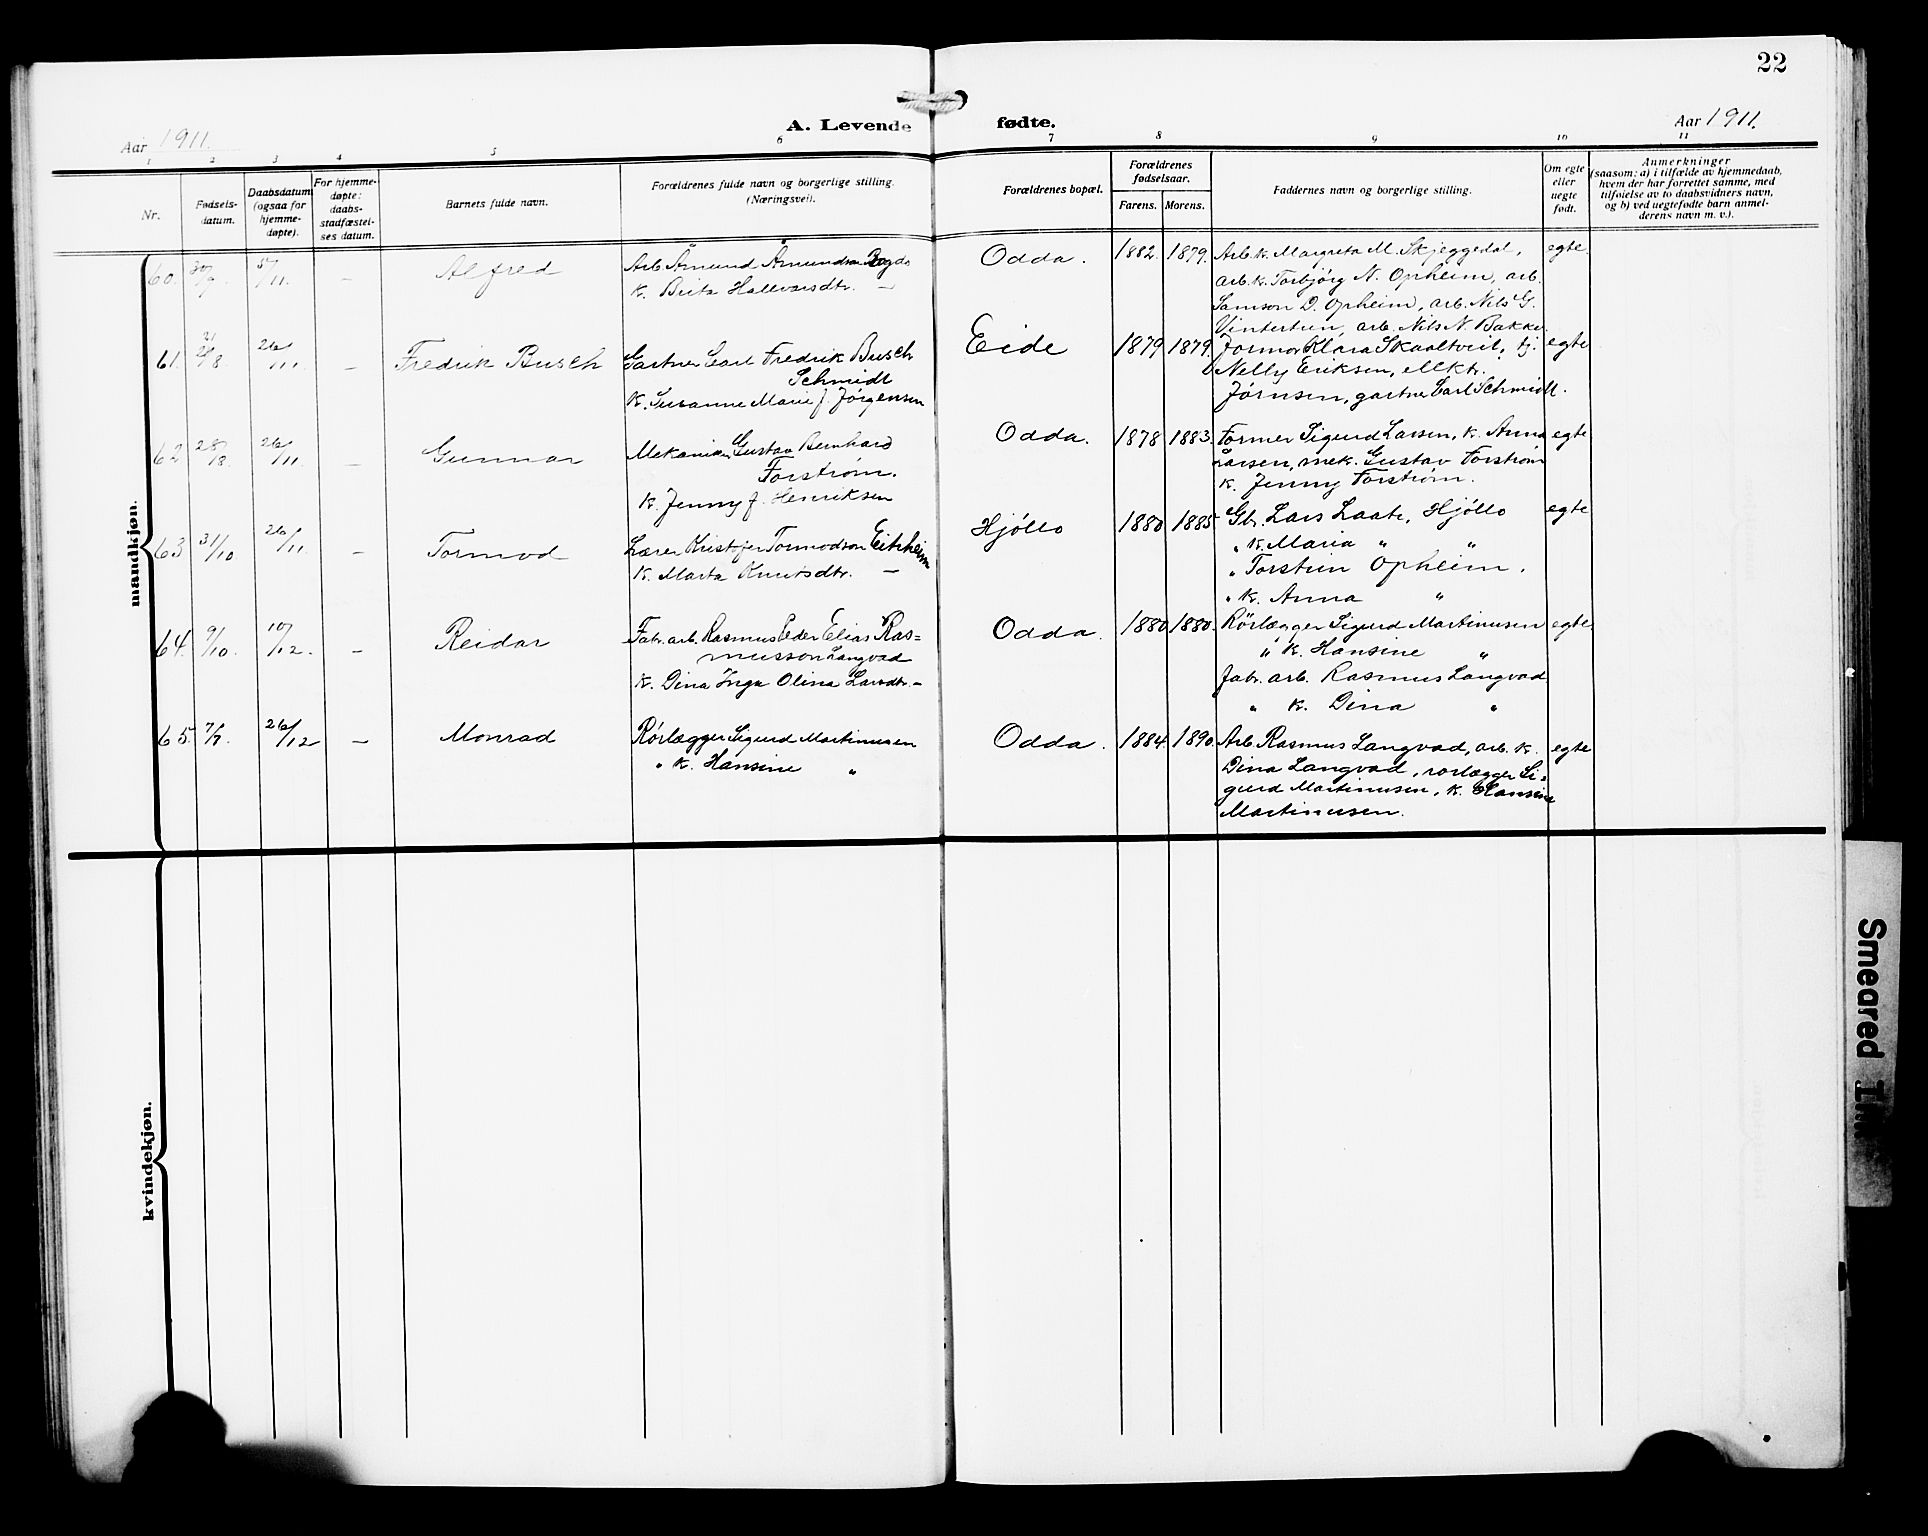 22
Aar 1911.
A. Levende fødte.
Aar 1911.
1 2 3 4 5 6 7 8 9 10 11
Nr.
Fødsels-
datum.
Daabsdatum
(ogsaa for
hjemme-
døpte).
For hjemme-
døpte:
daabs-
stadfæstel-
ses datum.
Barnets fulde navn.
Forældrenes fulde navn og borgerlige stilling.
(Næringsvei).
Forældrenes bopæl.
Forældrenes
fødselsaar.
Farens. Morens.
Faddernes navn og borgerlige stilling.
Om egte
eller
uegte
født.
Anmerkninger
(saasom: a) i tilfælde av hjemmedaab,
hvem der har forrettet samme, med
tilføielse av to daabsvidners navn,
og b) ved uegtefødte barn anmel-
derens navn m. v.).
mandkjøn.
60. 30/9. 5/11. – Alfred
Arb. Åmund Åmundson
k. Brita Hallvarsdtr. –
Odda. 1882. 1879.
Arb. k. Margreta M. Skjeggedal,
arb. k. Torbjørg N. Opheim, arb.
Samson D. Opheim, arb. Nils G.
Vintertun, arb. Nils N. Bakke.
egte.
61. 21/8. 26/11. – Fredrik Busch
Gartner Carl Fredrik Busch
Schmidt
k. Susanne Marie f. Jørgensen
Eide 1879 1879.
Jormor Klara Skaaltveit, tj.
Nelly Eriksen, ellktr.
Jørnsen, gartner Carl Schmidt.
egte
62 28/8. 26/11. – Gunnar
Mekaniker Gustav Bernhard
Forstrøm.
k. Jenny f. Henriksen
Odda. 1878 1883.
Former Sigurd Larsen, k. Anna
Larsen, mek. Gustav Forstrøm
k. Jenny Forstrøm.
egte
63 31/10 26/11. – Tormod
Lærer Kristofer Tormodson Eitrheim
k. Marta Knutsdtr. –
Hjøllo 1880 1885
Gbr. Lars Laate, Hjøllo
" k. Maria " "
" Torstein Opheim.
" k. Anna "
egte
64. 9/10. 10/12. – Reidar
Fabr. arb. Rasmus Peder Elias Ras-
musson Langvad
k. Dina Inga Olina Larsdtr. –
Odda. 1880 1880.
Rørlægger Sigurd Martinusen
" k. Hansine "
fabr. arb. Rasmus Langvad
" k. Dina "
egte
65. 7/7. 26/12 – Monrad
Rørlægger Sigurd Martinusen
" k. Hansine "
Odda. 1884. 1890.
Arb. Rasmus Langvad, arb. k.
Dina Langvad, rørlægger Si-
gurd Martinusen, k. Hansine
Martinusen.
egte
kvindekjøn.
Smeared